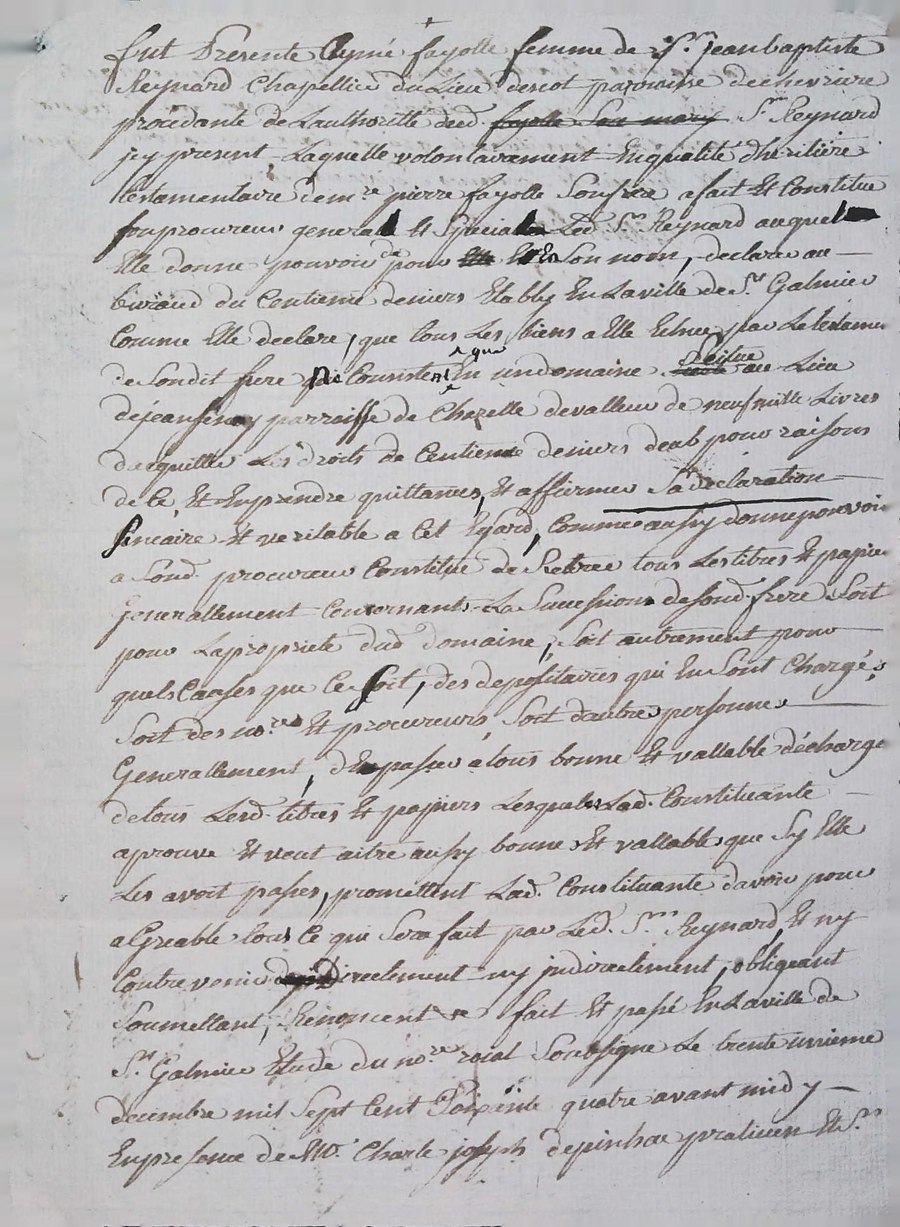 fut Presente Aymé fayolle femme de Sr. jean baptiste
Reynard Chapellier du Lieu descot paroisse de chevriere
procedante de Lauthoritté dud. fayolle Son mary Sr. Reynard
jcy present Laquelle volontairement Enqualité dheritiere
testamentaire de mre. pierre fayolle Sonfrere a fait Et Constitue
Sonprocureur general Et Special Led. Sr. Reynard auquel
Elle donne pouvoir de pour Elle Et En Son nom, declare au
bureaud du Centieme deniers Etably En Laville de St. Galmier
Comme Elle declare, que tous Les biens a Elle Echue par Le testamen
de Sondit frere ne Consiste que En undomaine Scitue au Lieu
de jeansinay parroisse de Chazelle devalleur de neuf mille Livres
dacquitter Les droits de Centieme deniers deub pour raisons
de Ce, Et Enprendre quittances, Et affirmer Sa declaration
Sincaire Et veritable a Cet Egard, Comme aussy donne pouvoir
a Sond. procureur Constitue de Retiree tous Les titres Et papier
generallement Concernants La Succession de Sond. frere Soit
pour Lapropriete dud. domaine, Soit autrement pour
quels Causes que Ce Soit, des depositaires qui En Sont Chargés
Soit des nores. Et procureurs, Soit dautre personne
Generallement, d'En passer a tous bonne Et vallable décharge
de tous Lesd. titres Et papiers Lesquels Lad. Constituante
aprouve Et veut aitre aussy bonne Et vallable que Sy Elle
Les avoit passes, promettent Lad. Constituante davoir pour
agreable tous Ce qui Sera fait par Led. Sr. Reynard, Et ny
Contrevenir directement ny jndirectement, obligeant
Soumettant, Renoncent &c fait Et passé En Laville de
St. Galmier Etude du nore. roial Soubsigne Le trente unieme
decembre mil Sept Cent Soixente quatre avant midy
Enpresence de Mr. Charle joseph depinhac praticien Et Sr.